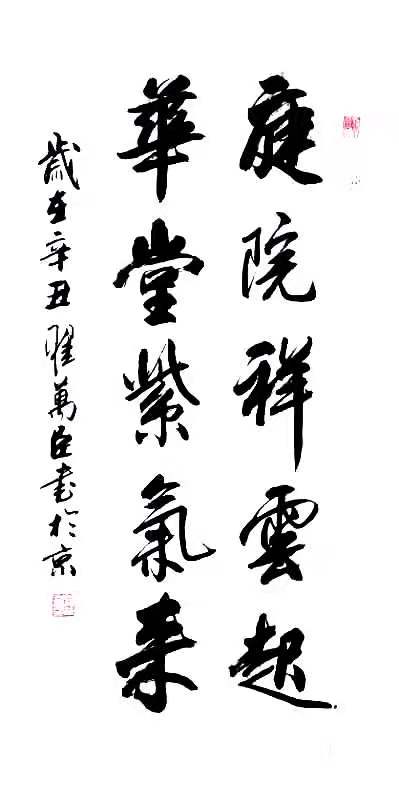 庭院祥雲起
華堂紫氣来
歲在辛丑瞿萬臣书於京